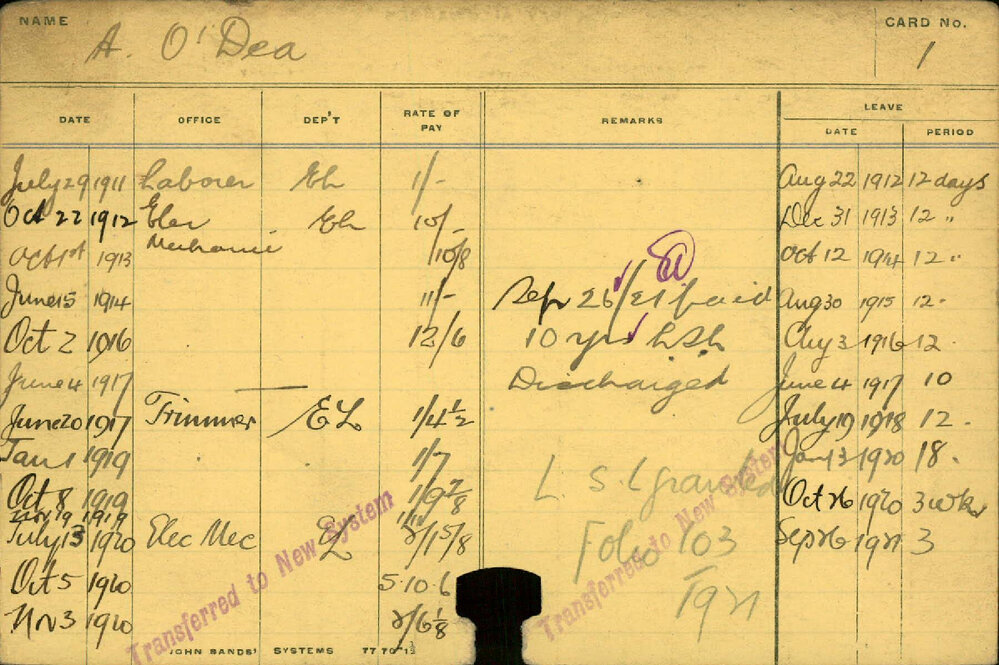 NAME
A. O'Dea
CARD No.
1
DATE OFFICE DEP'T RATE OF PAY REMARKS LEAVE
DATE PERIOD
July 29 1911 Laborer Eh 1/- Aug 22 1912 12 days
Oct 22 1912 Elec Mechanic Eh 10/- Dec 31 1913 12 "
Oct 1st 1913 10/8 Oct 12 1914 12 "
June 15 1914 11/- Sep 26/21 paid Aug 30 1915 12 "
Oct 2 1916 12/6 10 yrs LSL Aug 3 1916 12 "
June 4 1917 — Discharged June 4 1917 10
June 20 1917 Trimmer EL 1/4½ July 19 1918 12 "
Jan 1 1919 1/7 Jan 13 1920 18 "
Oct 8 1919 1/9⅞ L. S. L granted Oct 26 1920 3 wks
Nov 19 1919
July 13 1920 Elec Mec EL 2/1⅝ Folio 103 Sep 26 1921 3
Oct 5 1920 5.10.6 1921
Nov 3 1920 2/6⅛
Transferred to New System
Transferred to New System
JOHN SANDS' SYSTEMS